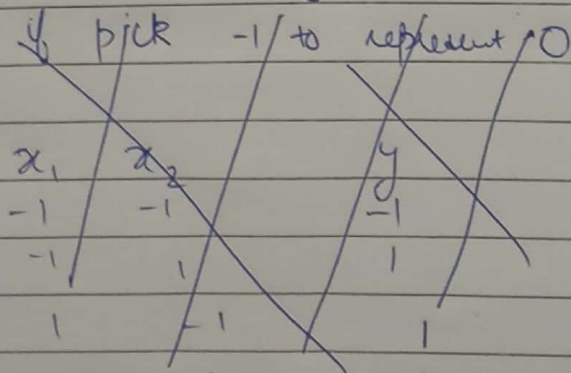 y pick -1 to represent 0
x₁ x₂ y
-1 -1 -1
-1 1 1
1 -1 1